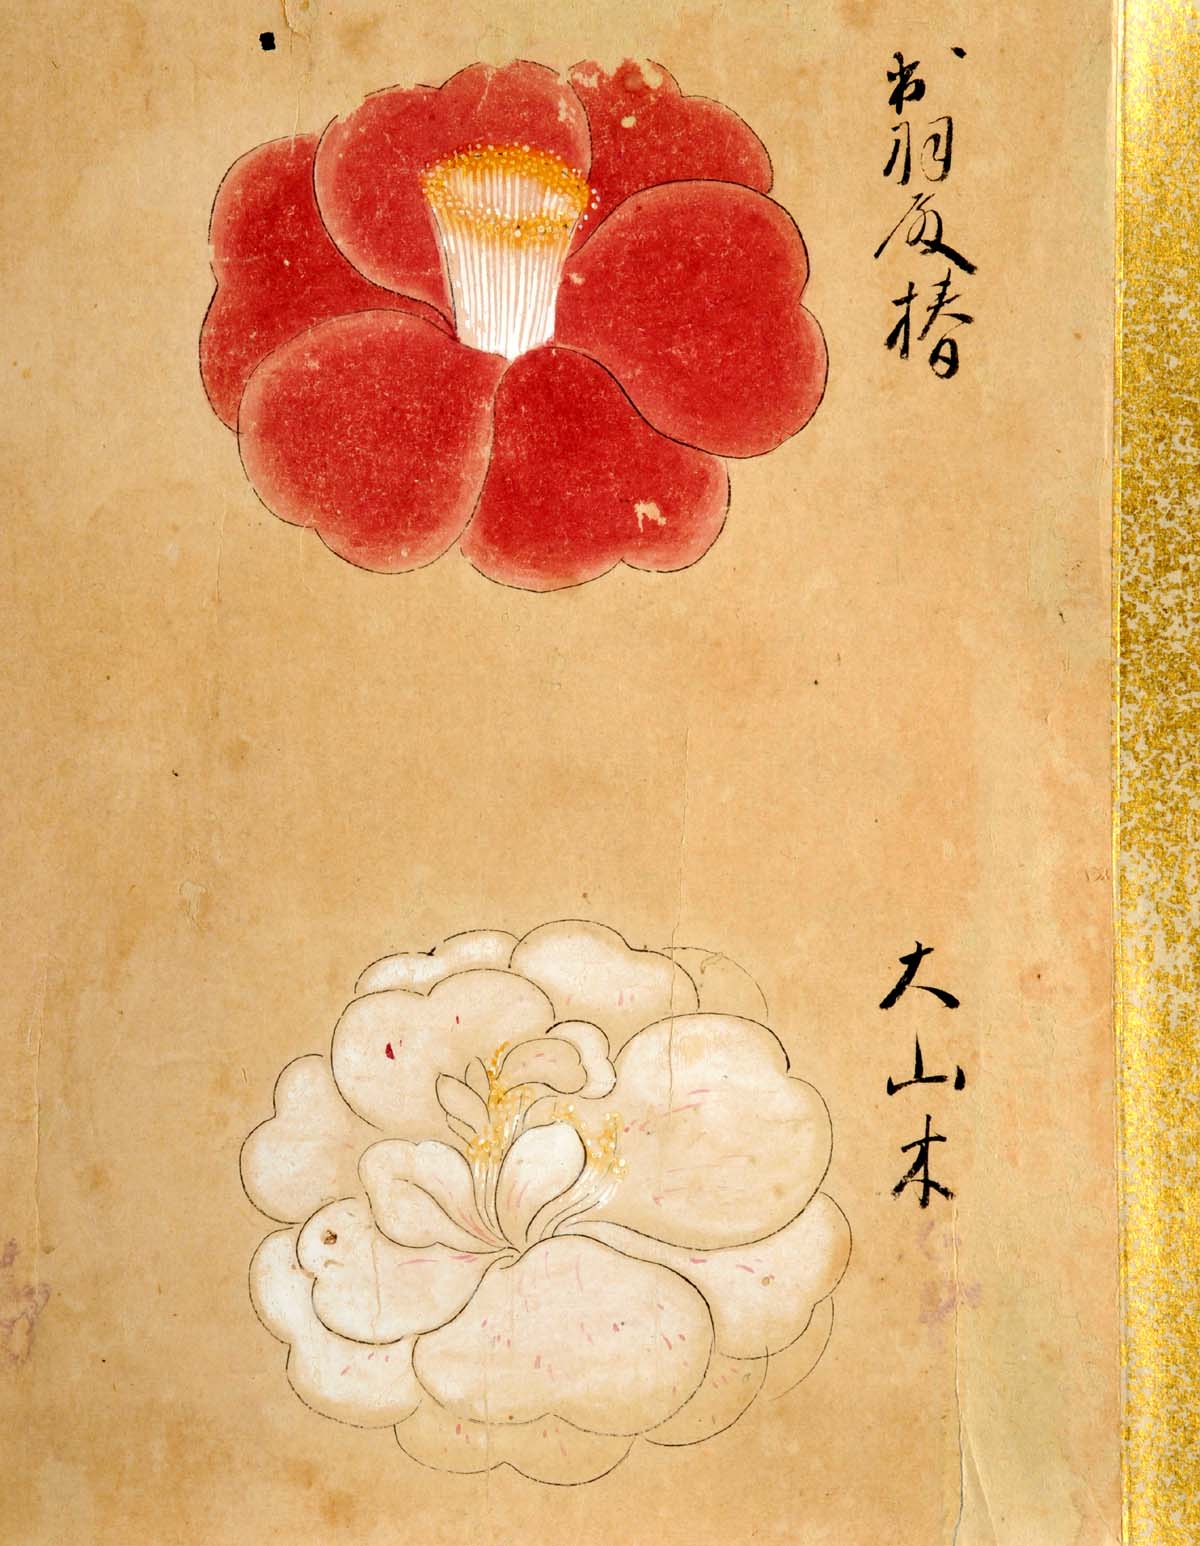 出羽殿椿
大山木